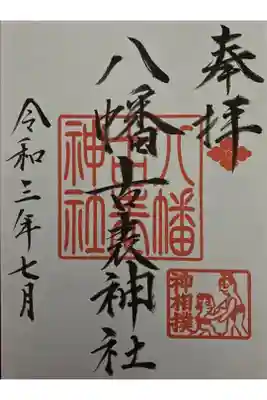 奉拝
八幡古表神社
令和三年七月
八幡
古表
神社
神相撲